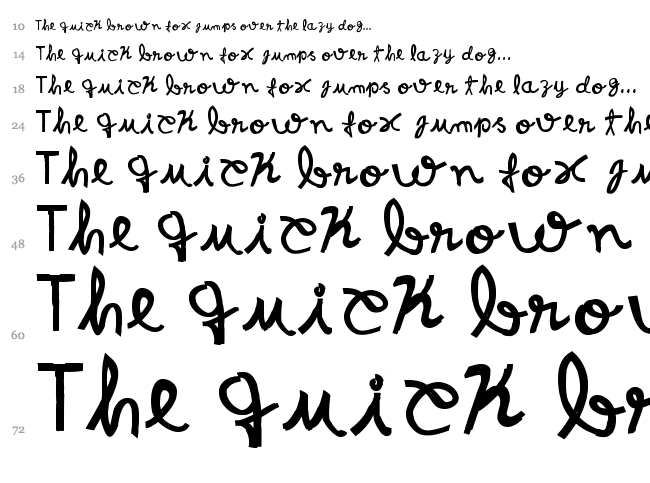 10 The quick brown fox jumps over the lazy dog...
14 The quick brown fox jumps over the lazy dog...
18 The quick brown fox jumps over the lazy dog...
24 The quick brown fox jumps over the
36 The quick brown fox ju
48 The quick brown
60 The quick brow
72 The quick br